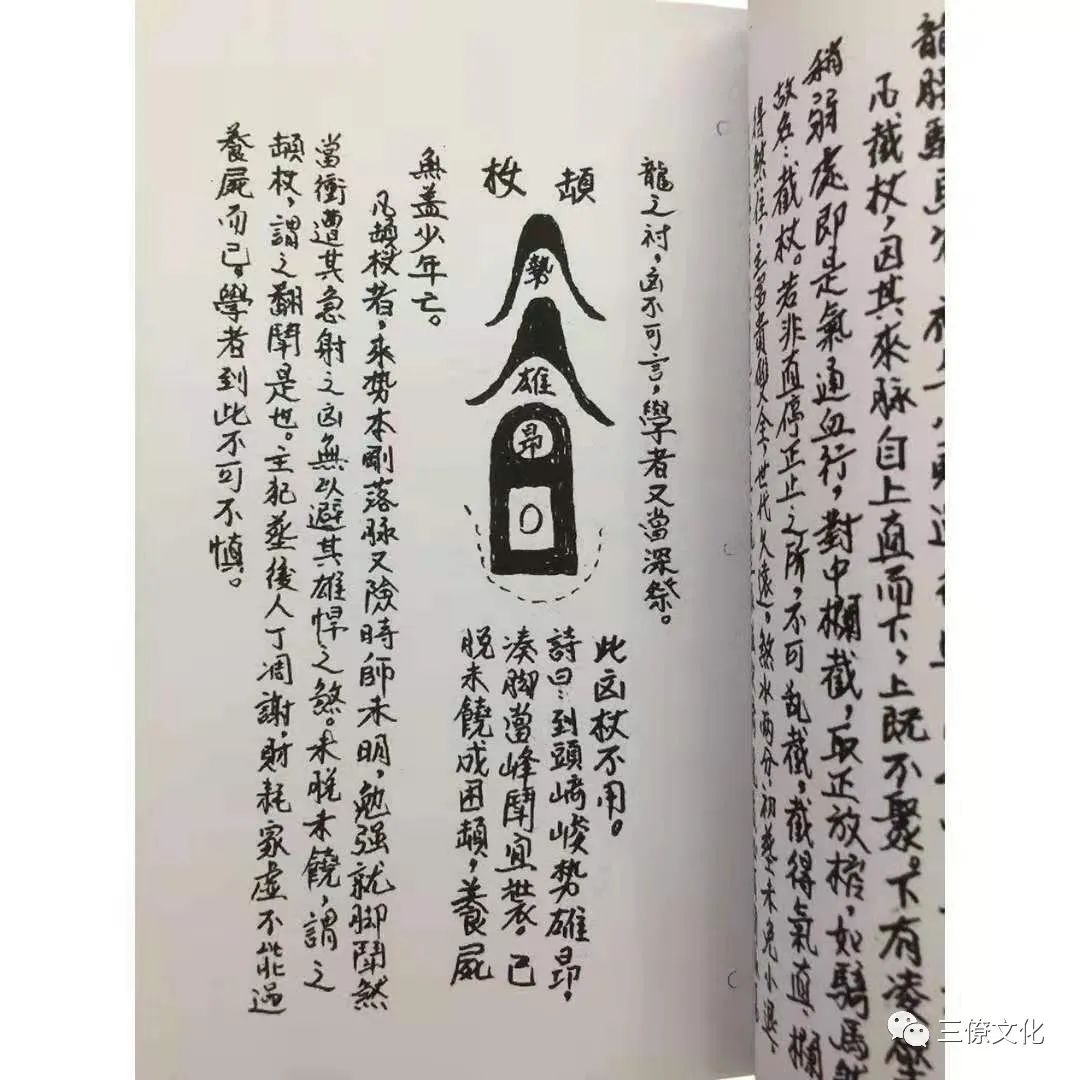 龍腰騎馬
凡截杖，因其來脉自上直而下，上既不聚。下有凌
稍弱處即是氣通血行，對中攔截，取正放棺，如騎馬
故名：截杖。若非直停正止之所，不可亂截，截得上氣直，攔
得煞住，主富貴雙全，世代久遠。煞水兩分，初塟未免小退。
龍之衬，凶不可言，學者又當深祭。
頓杖
勢
雄
昂
此凶杖不用。
詩曰：到頭崎峻势雄昂，
湊脚當峰鬪宜裝。已
脱未饒成困頓，養屍
無益少年亡。
凡頓杖者，來势本剛落脉又險時師未明，勉强就脚鬪煞
當衝遭其急射之凶無以避其雄悍之煞。未脱未饒，謂之
頓杖，謂之翻鬪是也。主犯塟後人丁凋謝，財耗家虛不此過
養屍而已。學者到此不可不慎。
三僚文化